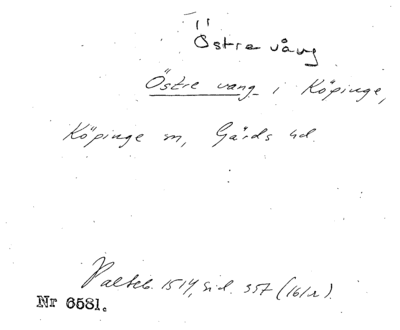 Östre vång
Östre vang i Köpinge,
Köpinge sn, Gårds hd.
Palteb. 1514, sid. 357 (16/2).
Nr 6581.